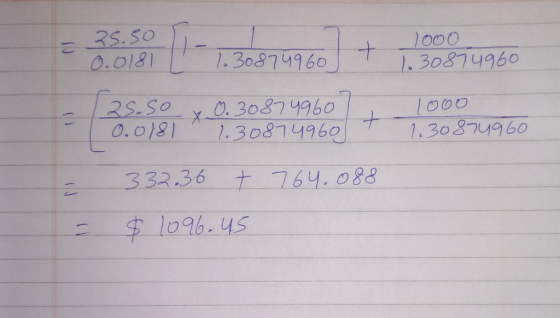 = 25.50/0.0181 [1 - 1/1.30874960] + 1000/1.30874960
= [25.50/0.0181 × 0.30874960/1.30874960] + 1000/1.30874960
= 332.36 + 764.088
= $ 1096.45